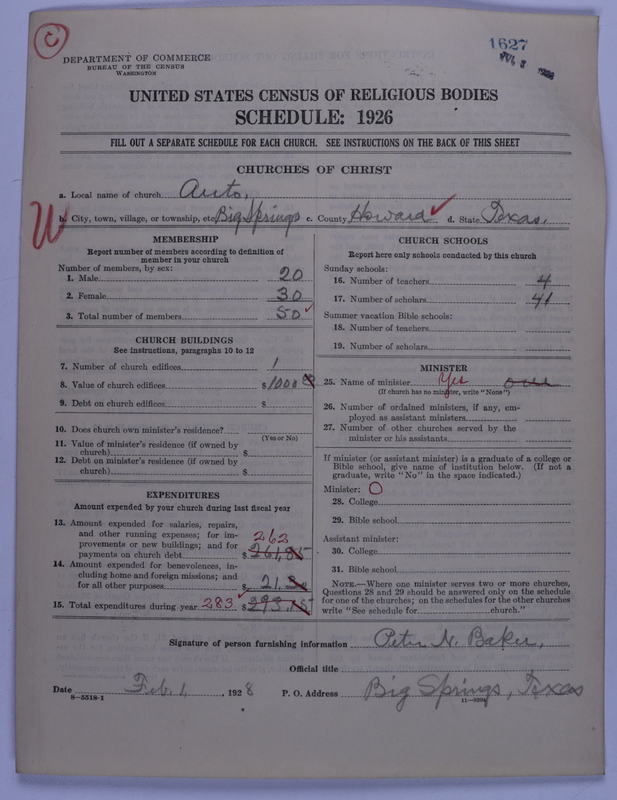 C
1627
DEPARTMENT OF COMMERCE
BUREAU OF THE CENSUS
WASHINGTON
UNITED STATES CENSUS OF RELIGIOUS BODIES
SCHEDULE: 1926
FILL OUT A SEPARATE SCHEDULE FOR EACH CHURCH. SEE INSTRUCTIONS ON THE BACK OF THIS SHEET
CHURCHES OF CHRIST
a. Local name of church
W
b. City, town, village, or township, etc. Big Springs c. County Howard d. State Texas.
MEMBERSHIP
Report number of members according to definition of
member in your church
Number of members, by sex:
1. Male 20
2. Female 30
3. Total number of members 50
CHURCH BUILDINGS
See instructions, paragraphs 10 to 12
7. Number of church edifices 1
8. Value of church edifices $1000
9. Debt on church edifices $
10. Does church own minister's residence?
(Yes or No)
11. Value of minister's residence (if owned by
church) $
12. Debt on minister's residence (if owned by
church) $
EXPENDITURES
Amount expended by your church during last fiscal year
13. Amount expended for salaries, repairs,
and other running expenses; for im-
provements or new buildings; and for
262
payments on church debt $ 261,85
14. Amount expended for benevolences, in-
cluding home and foreign missions; and
for all other purposes $ 21.
15. Total expenditures during year 283 $
CHURCH SCHOOLS
Report here only schools conducted by this church
Sunday schools:
16. Number of teachers 4
17. Number of scholars 41
Summer vacation Bible schools:
18. Number of teachers
19. Number of scholars
MINISTER
25. Name of minister Yes
(If church has no minister, write "None")
26. Number of ordained ministers, if any, em-
ployed as assistant ministers
27. Number of other churches served by the
minister or his assistants
If minister (or assistant minister) is a graduate of a college or
Bible school, give name of institution below. (If not a
graduate, write "No" in the space indicated.)
Minister: O
28. College
29. Bible school
Assistant minister:
30. College
31. Bible school
NOTE.—Where one minister serves two or more churches,
Questions 28 and 29 should be answered only on the schedule
for one of the churches; on the schedules for the other churches
write "See schedule for church."
Signature of person furnishing information Peter N. Baker,
Official title
Date Feb. 1, 1928 P. O. Address Big Springs, Texas
8—5518-1